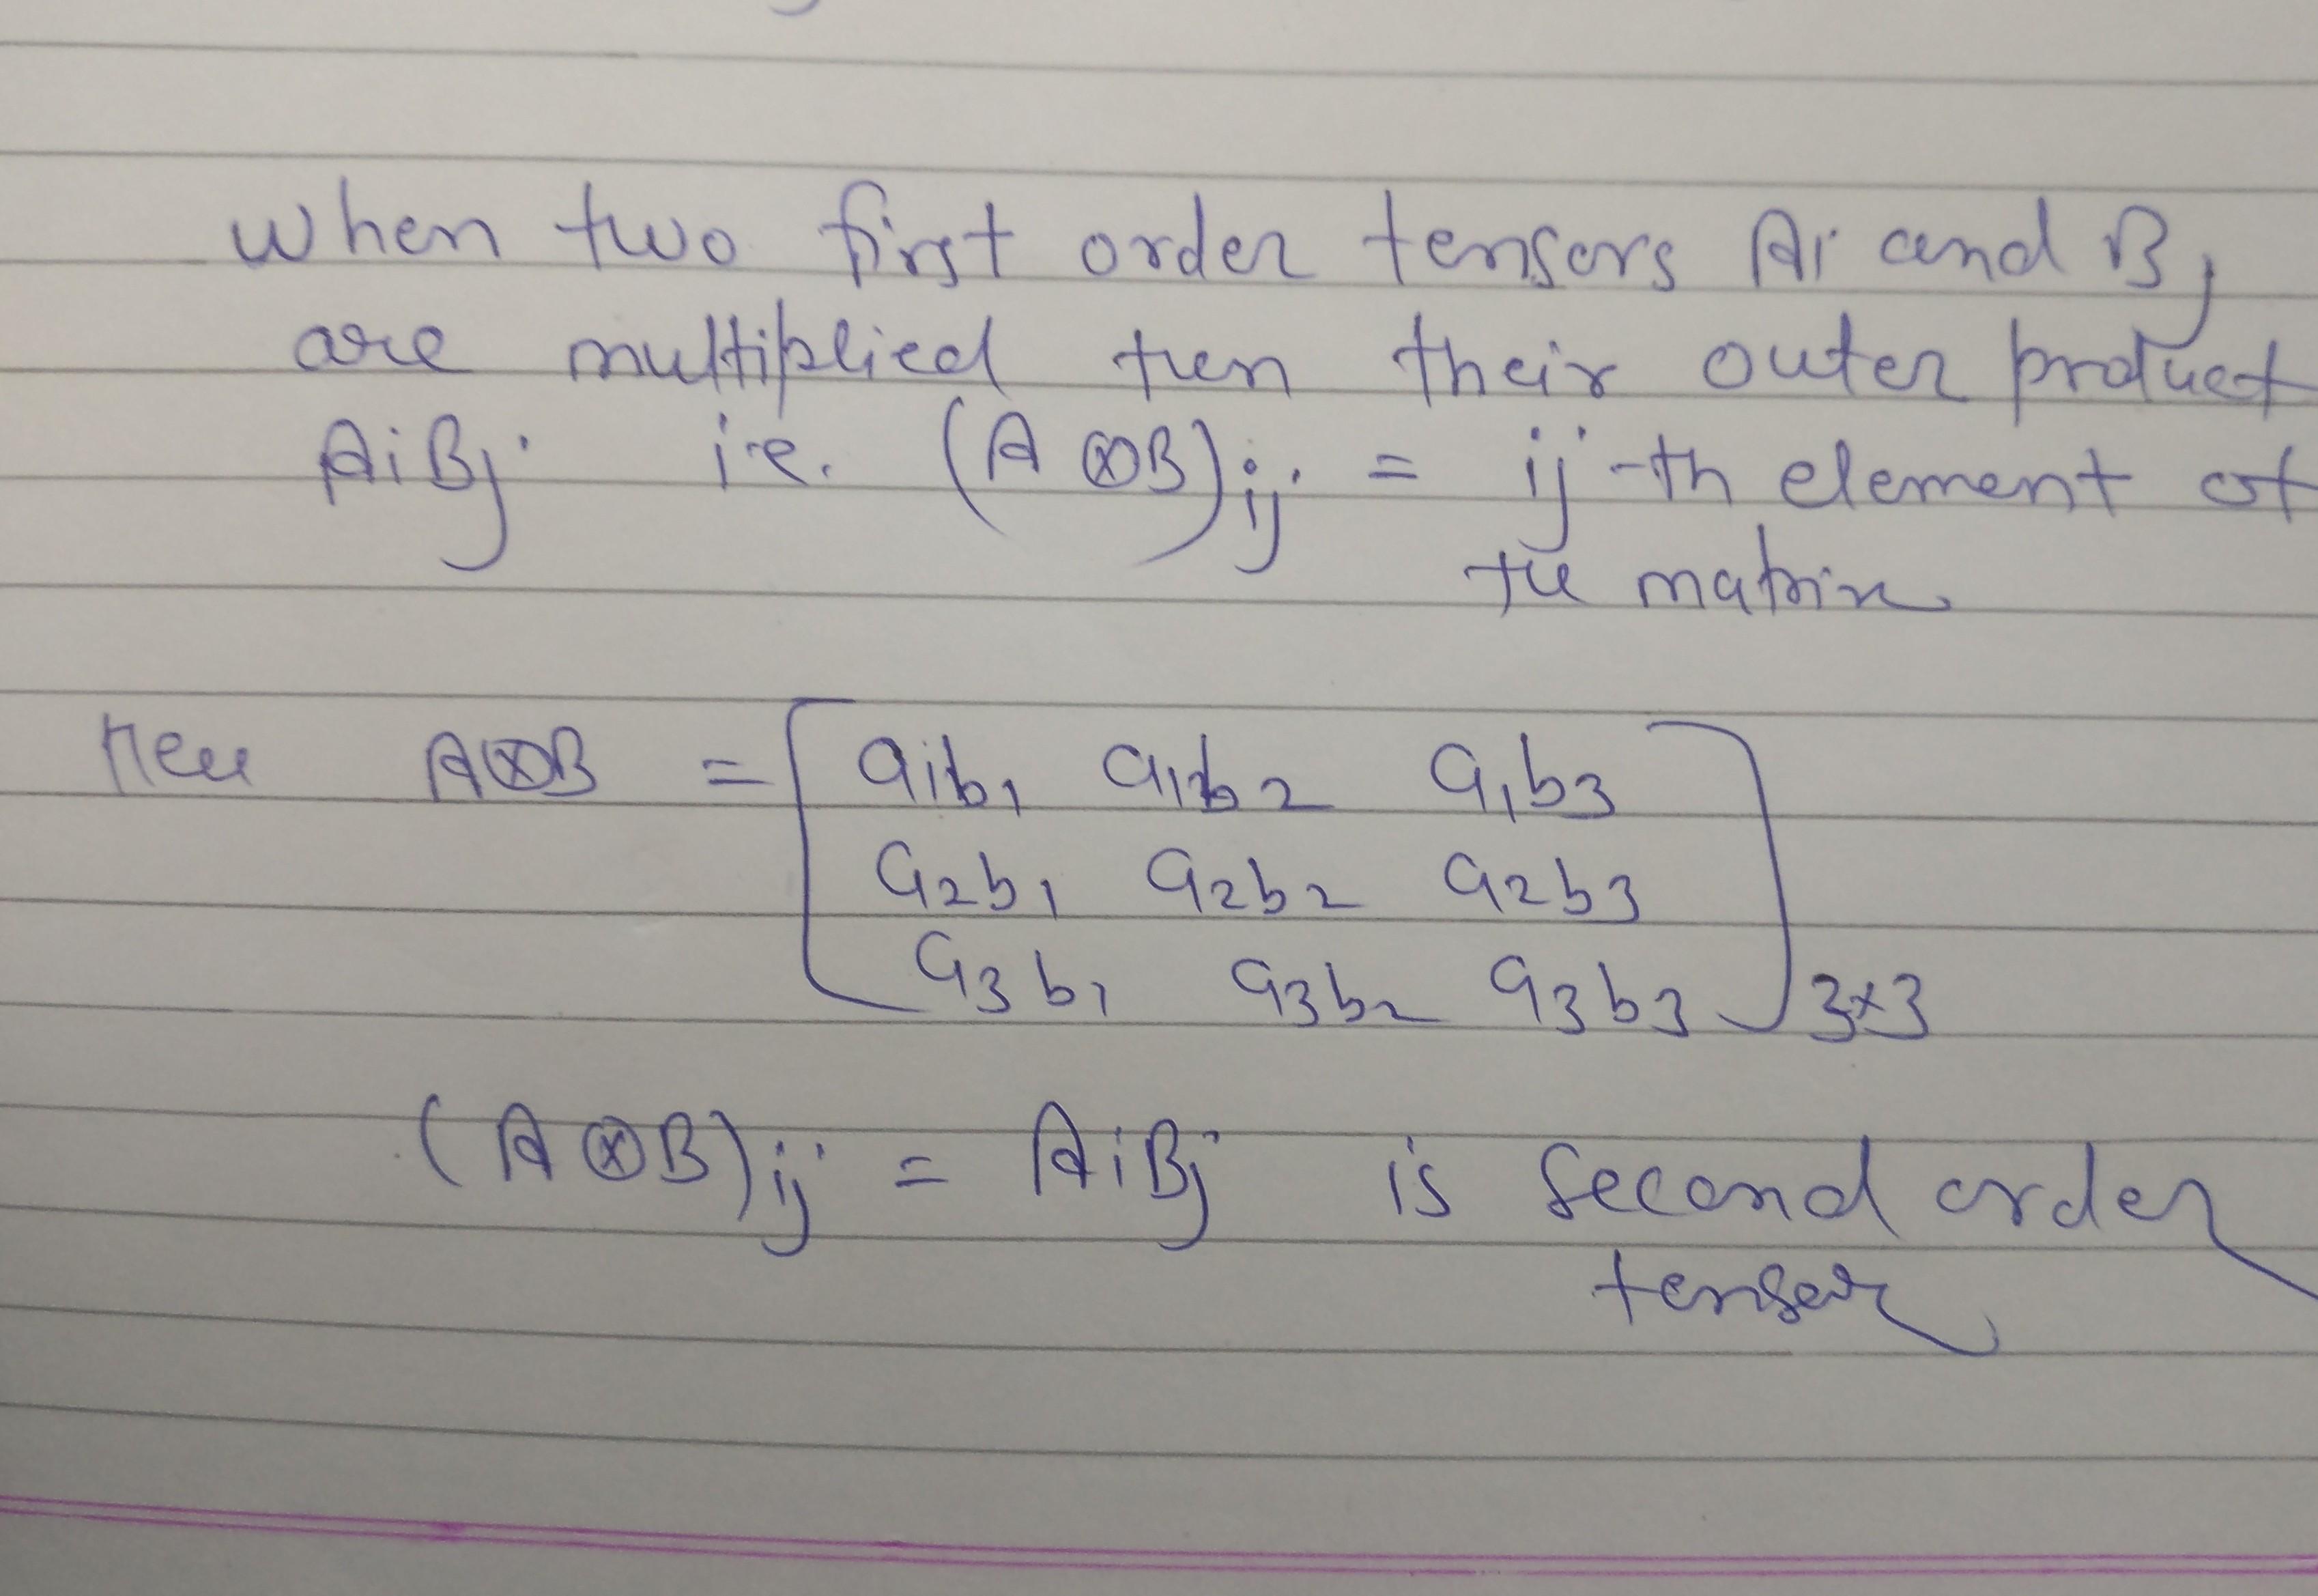 When two first order tensors Ai and Bj
are multiplied then their outer product
AiBj i.e. (A ⊗ B)ij = ij-th element of
the matrix
Here A⊗B = [ a1b1 a1b2 a1b3
a2b1 a2b2 a2b3
a3b1 a3b2 a3b3 ] 3×3
(A ⊗ B)ij = AiBj is second order
tensor